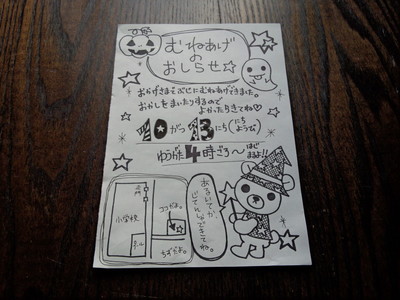 むねあげ
の
おしらせ☆
おかげさまでぶじにむねあげできました。
おかしをまいたりするので
よかったらきてね♡
10がつ13にち(にちようび)
ゆうがた4時ごろ～はじまるよ!!
門
小学校
ココだよ。
ちずだよ。
あるいてか、
じてんしゃできてね。